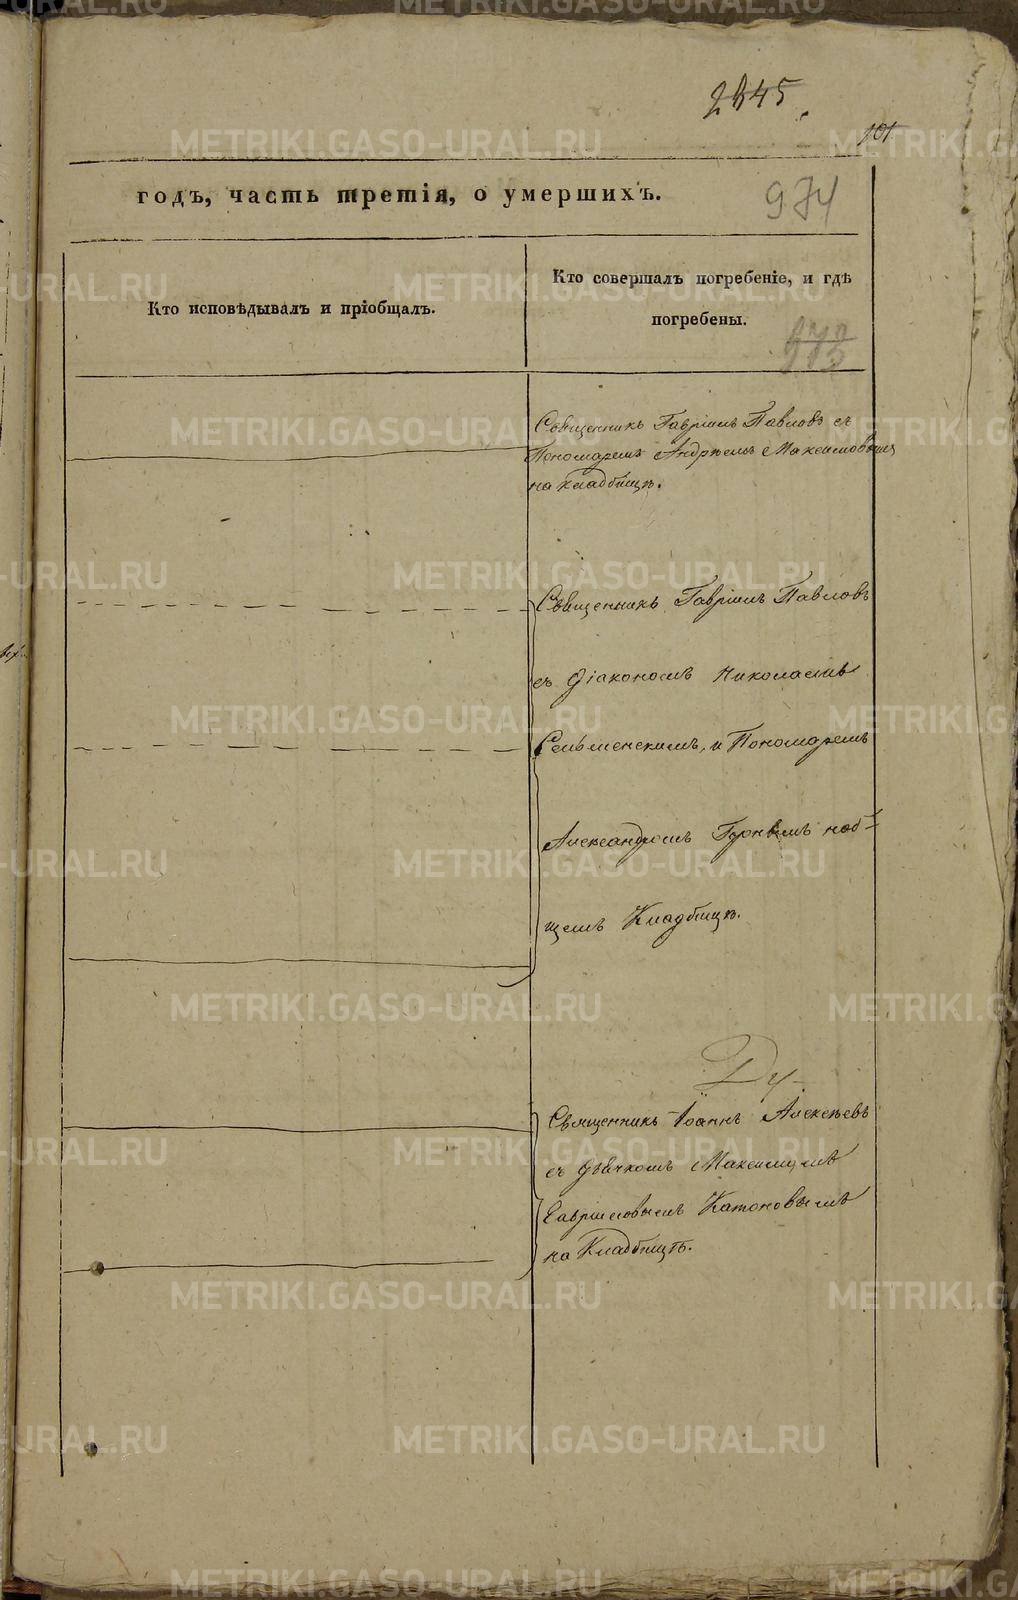 2845
101
годъ, часть третія, о умершихъ.
974
Кто исповѣдывалъ и пріобщалъ.
Кто совершалъ погребеніе, и гдѣ
погребены.
Священникъ Гавріилъ Павловъ съ
Пономаремъ Андреемъ Максимовымъ
на кладбищѣ.
Священникъ Гавріилъ Павловъ
съ Діакономъ Николаемъ
и Пономаремъ
Александромъ наоб-
щемъ Кладбищѣ.
Священникъ Іоаннъ Алексѣевъ
съ Дьячкомъ Максимомъ
Гавриловымъ Катоновымъ
на Кладбищѣ.
METRIKI.GASO-URAL.RU